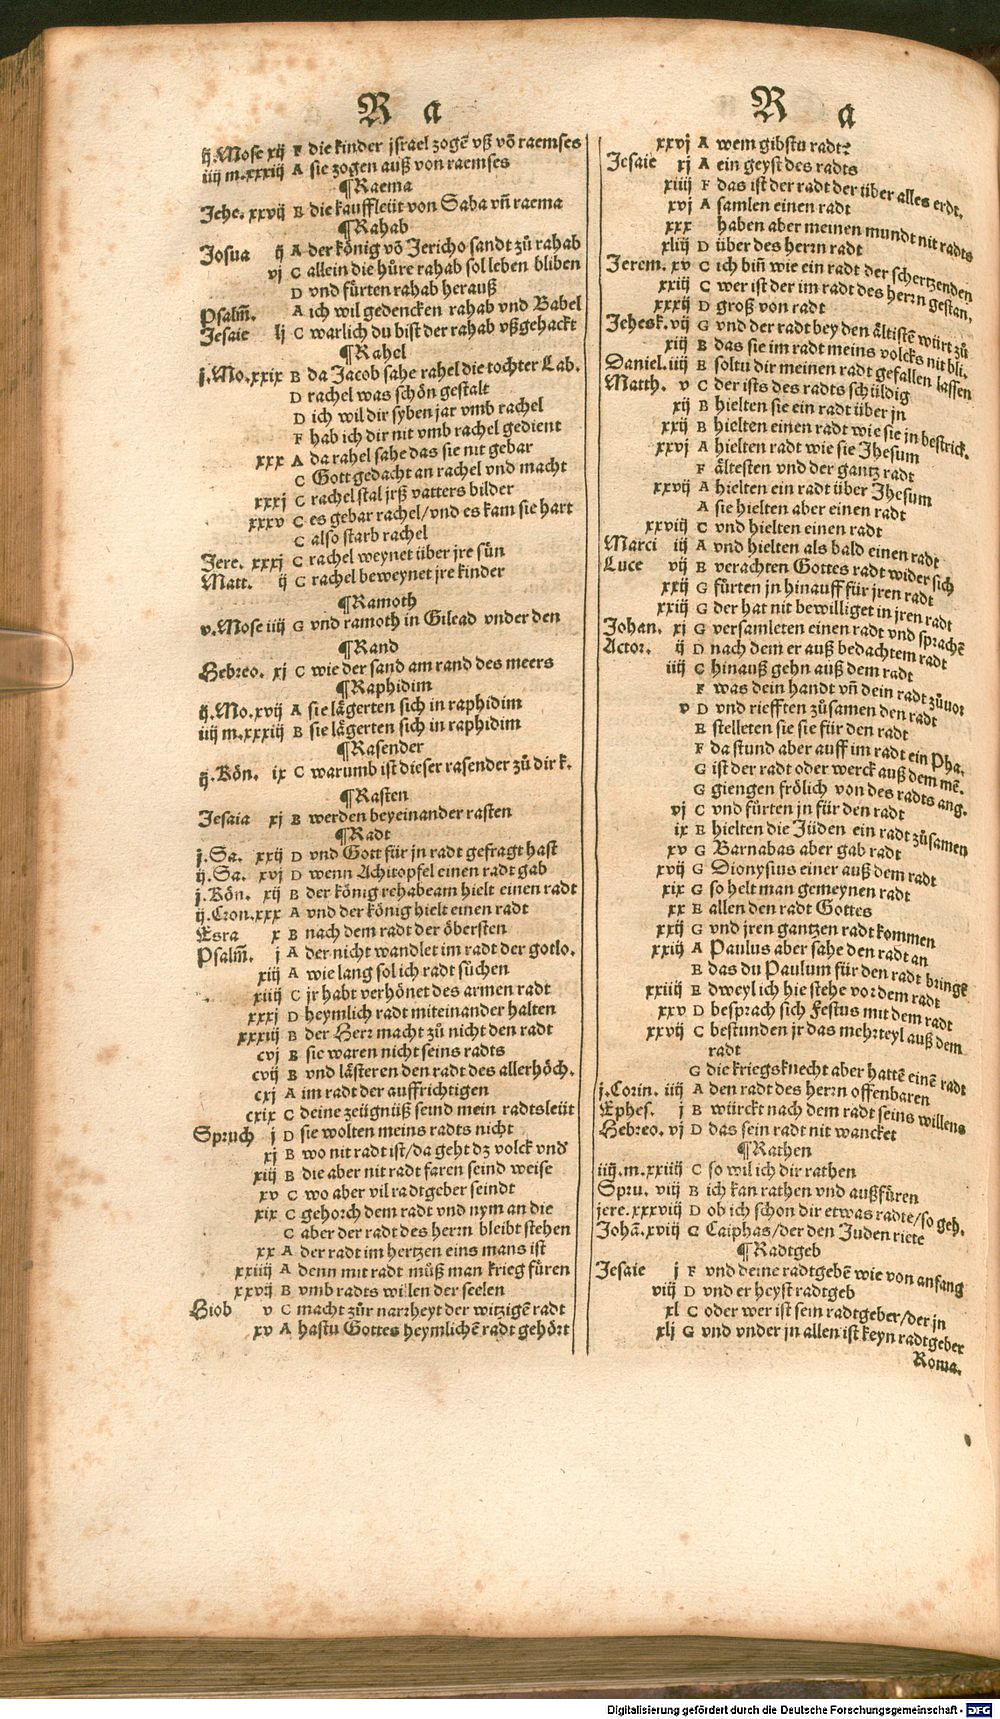 R a
ij.Mose xij F die kinder jsrael zogẽ vß võ raemses
iiij m.xxxiij A sie zogen auß von raemses
¶Raema
Jehe. xxvij B die kauffleüt von Saba vñ raema
¶Rahab
Josua ij A der könig võ Jericho sandt zů rahab
vj C allein die hůre rahab sol leben bliben
D vnd fürten rahab herauß
Psalm̃. A ich wil gedencken rahab vnd Babel
Jesaie lj C warlich du bist der rahab vßgehackt
¶Rahel
j.Mo.xxix B da Jacob sahe rahel die tochter Lab.
D rachel was schön gestalt
D ich wil dir syben jar vmb rachel
F hab ich dir nit vmb rachel gedient
xxx A da rahel sahe das sie nit gebar
C Gott gedacht an rachel vnd macht
xxxj C rachel stal jrß vatters bilder
xxxv C es gebar rachel/vnd es kam sie hart
C also starb rachel
Jere. xxxj C rachel weynet über jre sün
Matt. ij C rachel beweynet jre kinder
¶Ramoth
v.Mose iiij G vnd ramoth in Gilead vnder den
¶Rand
Hebreo. xj C wie der sand am rand des meers
¶Raphidim
ij.Mo.xvij A sie lägerten sich in raphidim
iiij m.xxxiij B sie lägerten sich in raphidim
¶Rasender
ij.Kön. ix C warumb ist dieser rasender zů dir k.
¶Rasten
Jesaia xj B werden beyeinander rasten
¶Radt
j.Sa. xxij D vnd Gott für jn radt gefragt hast
ij.Sa. xvj D wenn Achitopfel einen radt gab
j.Kön. xij B der könig rehabeam hielt einen radt
ij.Cron.xxx A vnd der könig hielt einen radt
Esra x B nach dem radt der öbersten
Psalm̃. j A der nicht wandlet im radt der gotlo.
xiij A wie lang sol ich radt süchen
xiiij C jr habt verhönet des armen radt
xxxj D heymlich radt miteinander halten
xxxiij B der Herr macht zů nicht den radt
cvj B sie waren nicht seins radts
cvij B vnd lästeren den radt des allerhöch.
cxj A im radt der auffrichtigen
cxix C deine zeügnüß seind mein radtsleüt
Spruch j D sie wolten meins radts nicht
xj B wo nit radt ist/da geht dz volck vnd
xiij B die aber nit radt faren seind weise
xv C wo aber vil radtgeber seindt
xix C gehorch dem radt vnd nym an die
C aber der radt des herrn bleibt stehen
xx A der radt im hertzen eins mans ist
xxiiij A denn mit radt můß man krieg füren
xxvij B vmb radts willen der seelen
Hiob v C macht zůr narrheyt der witzigẽ radt
xv A hastu Gottes heymlichẽ radt gehört
R a
xxvj A wem gibstu radt?
Jesaie xj A ein geyst des radts
xiiij F das ist der radt der über alles erdt.
xvj A samlen einen radt
xxx haben aber meinen mundt nit radts
xliij D über des herrn radt
Jerem. xv C ich biñ wie ein radt der schertzenden
xxiij C wer ist der im radt des herrn gestan,
xxxij D groß von radt
Jehesk. vij G vnd der radt bey den ältistẽ würt zů
xiij B das sie im radt meins volcks nit bli.
Daniel. iiij E soltu dir meinen radt gefallen lassen
Matth. v C der ists des radts schüldig
xij B hielten sie ein radt über jn
xxij B hielten einen radt wie sie jn bestrick.
xxvj A hielten radt wie sie Jhesum
F ältesten vnd der gantz radt
xxvij A hielten ein radt über Jhesum
A sie hielten aber einen radt
xxviij C vnd hielten einen radt
Marci iij A vnd hielten als bald einen radt
Luce vij E verachten Gottes radt wider sich
xxij G fürten jn hinauff für jren radt
xxiij G der hat nit bewilliget in jren radt
Johan. xj G versamleten einen radt vnd sprachẽ
Actor. ij D nach dem er auß bedachtem radt
iiij C hinauß gehn auß dem radt
F was dein handt vñ dein radt zůvor
v D vnd riefften zůsamen den radt
E stelleten sie sie für den radt
F da stund aber auff im radt ein Pha.
G ist der radt oder werck auß dem mẽ.
G giengen frölich von des radts ang.
vj C vnd fürten jn für den radt
ix E hielten die Jüden ein radt zůsamen
xv G Barnabas aber gab radt
xvij G Dionysius einer auß dem radt
xix G so helt man gemeynen radt
xx E allen den radt Gottes
xxij G vnd jren gantzen radt kommen
xxiij A Paulus aber sahe den radt an
E das du Paulum für den radt bringẽ
xxiiij E dweyl ich hie stehe vor dem radt
xxv D besprach sich Festus mit dem radt
xxvij C bestunden jr das mehrteyl auß dem
radt
G die kriegsknecht aber hattẽ einẽ radt
j.Corin. iiij A den radt des herrn offenbaren
Ephes. j B würckt nach dem radt seins willens
Hebreo. vj D das sein radt nit wancket
¶Rathen
iiij.m.xxiiij C so wil ich dir rathen
Spru. viij B ich kan rathen vnd außfüren
jere. xxxviij D ob ich schon dir etwas radte/so geh.
Johã.xviij G Caiphas/der den Juden riete
¶Radtgeb
Jesaie j F vnd deine radtgebẽ wie von anfang
viij D vnd er heyst radtgeb
xl C oder wer ist sein radtgeber/der jn
xlj G vnd vnder jn allen ist keyn radtgeber
Roma.
Digitalisierung gefördert durch die Deutsche Forschungsgemeinschaft - DFG